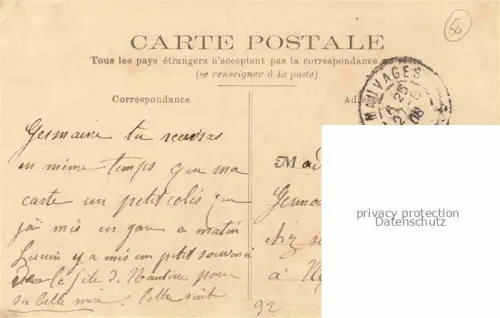 CARTE POSTALE
Tous les pays étrangers n'acceptent pas la correspondance au
(se renseigner à la poste).
Correspondance
Adresse
MAUVAGES
Germaine tu recevras
en même temps que ma
carte un petit colis que
j'ai mis en gare ce matin
y a mis un petit souvenir
de la fête de Nanterre pour
sa belle mère. Cette
Mad
Germ
chez
à
92
privacy protection
Datenschutz